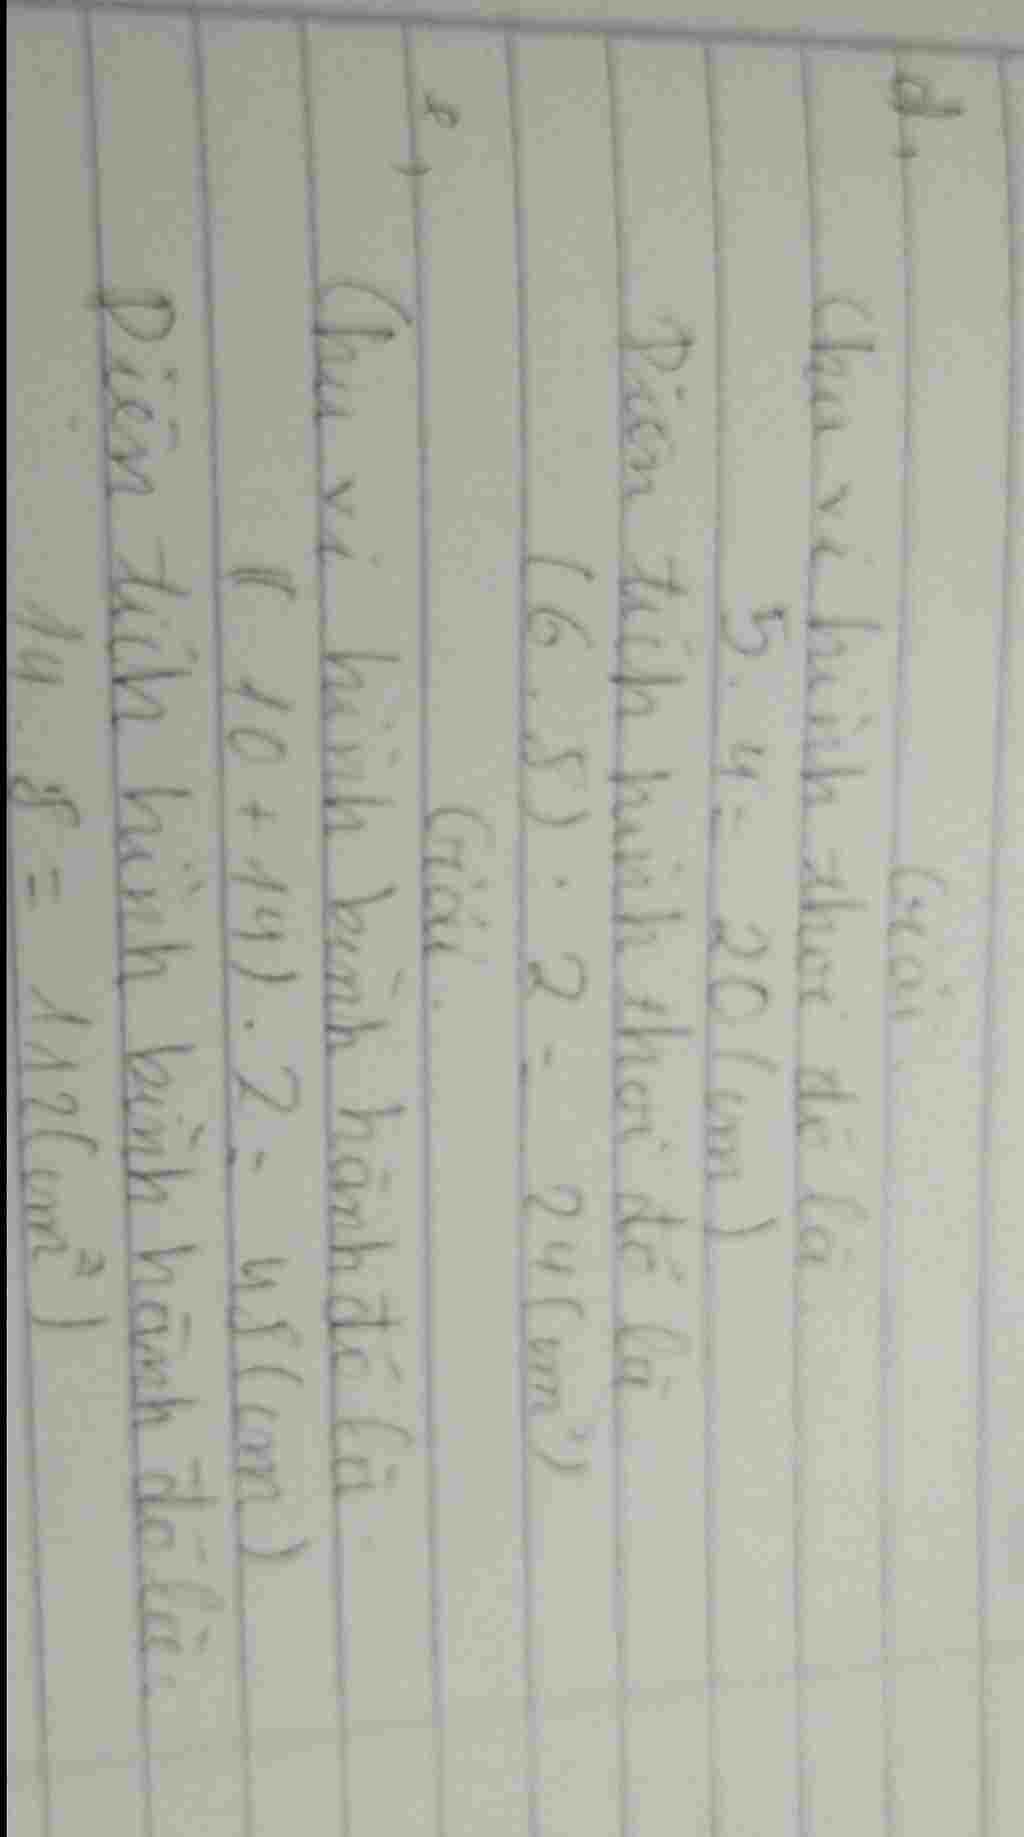 d,
Giải
Chu vi hình thoi đó là
5.4= 20(cm)
Diện tích hình thoi đó là
(6.8):2= 24(cm²)
e,
Giải.
Chu vi hình bình hành đó là
(10+14).2= 48(cm)
Diện tích hình bình hành đó là.
14.8= 112(cm²)